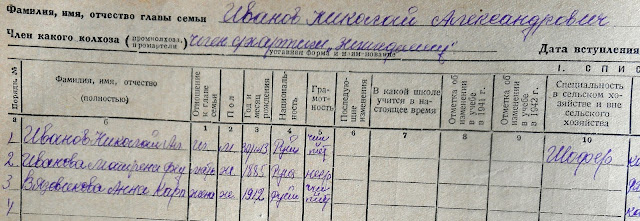 Фамилия, имя, отчество главы семьи Иванов Николай Александрович
Член какого колхоза (промколхоза, промартели) член
уставная форма и наименование
Дата вступления
I. СПИС
Порядк. №
Фамилия, имя, отчество (полностью)
Отношение к главе семьи
Пол
Год и месяц рождения
Национальность
Грамотность
Последующие изменения
В какой школе учится в настоящее время
Отметка об изменении в учебе в 1941 г.
Отметка об изменении в учебе в 1942 г.
Специальность в сельском хозяйстве и вне сельского хозяйства
а б 1 2 3 4 5 6 7 8 9 10
1 Иванов Николай Ал. гл. м. 1913 Русс Шофер
2 Иванова мать ж. 1885 Русс негр
3 Анна Карп жена ж. 1912 русс
4